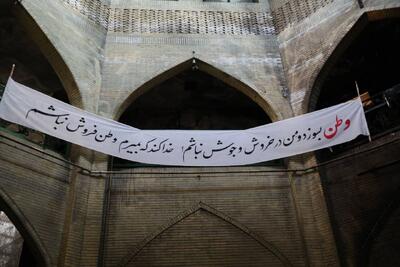 وطن بسوزد و من در خروش و جوش نباشم! خدا کند که بمیرم وطن فروش نباشم